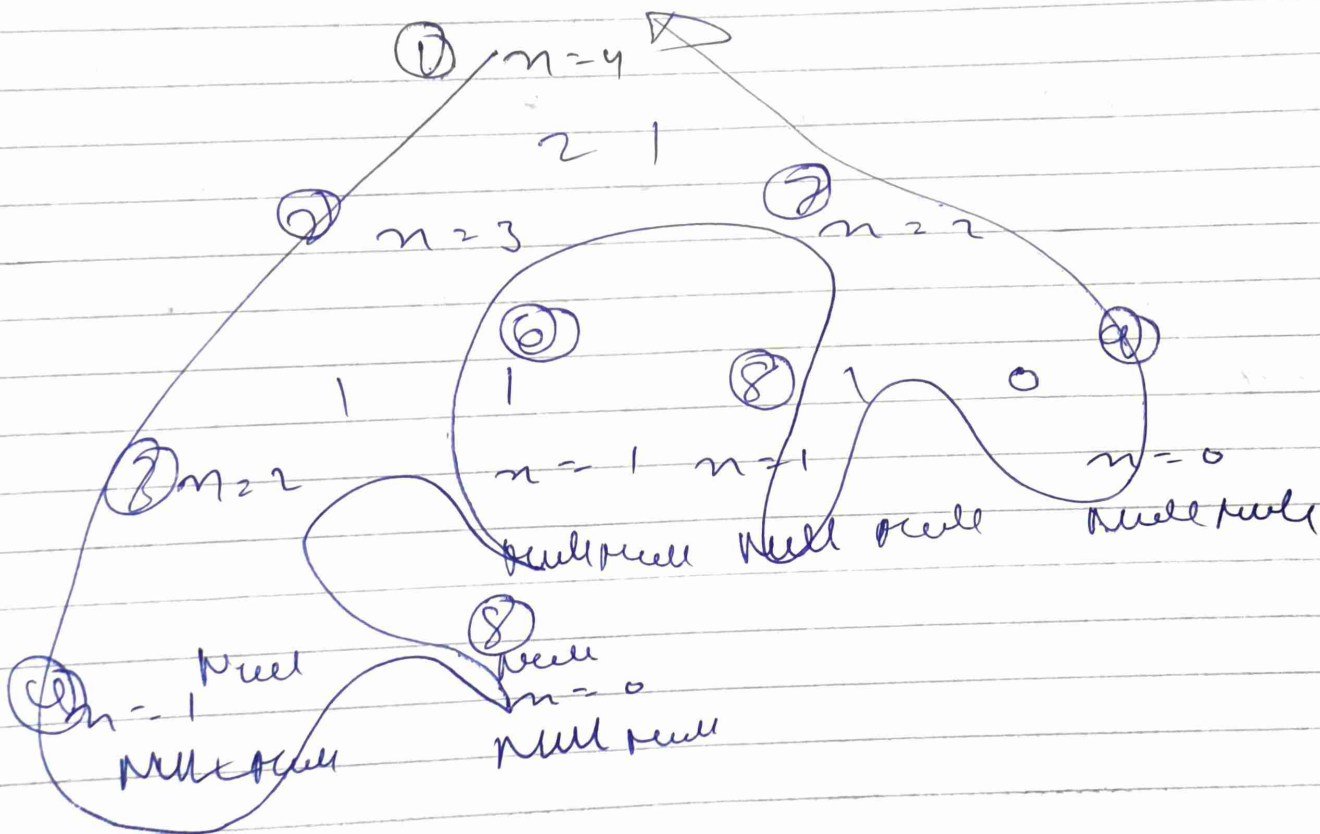 ① n=4
2 1
② n=3 ⑦ n=2
⑥ ⑧ 1 ⑨
1 1 0
③ n=2 n=1 n=1 n=0
Null Null Null Null Null Null
⑧
Null Null
④ n=1 n=0
Null Null Null Null